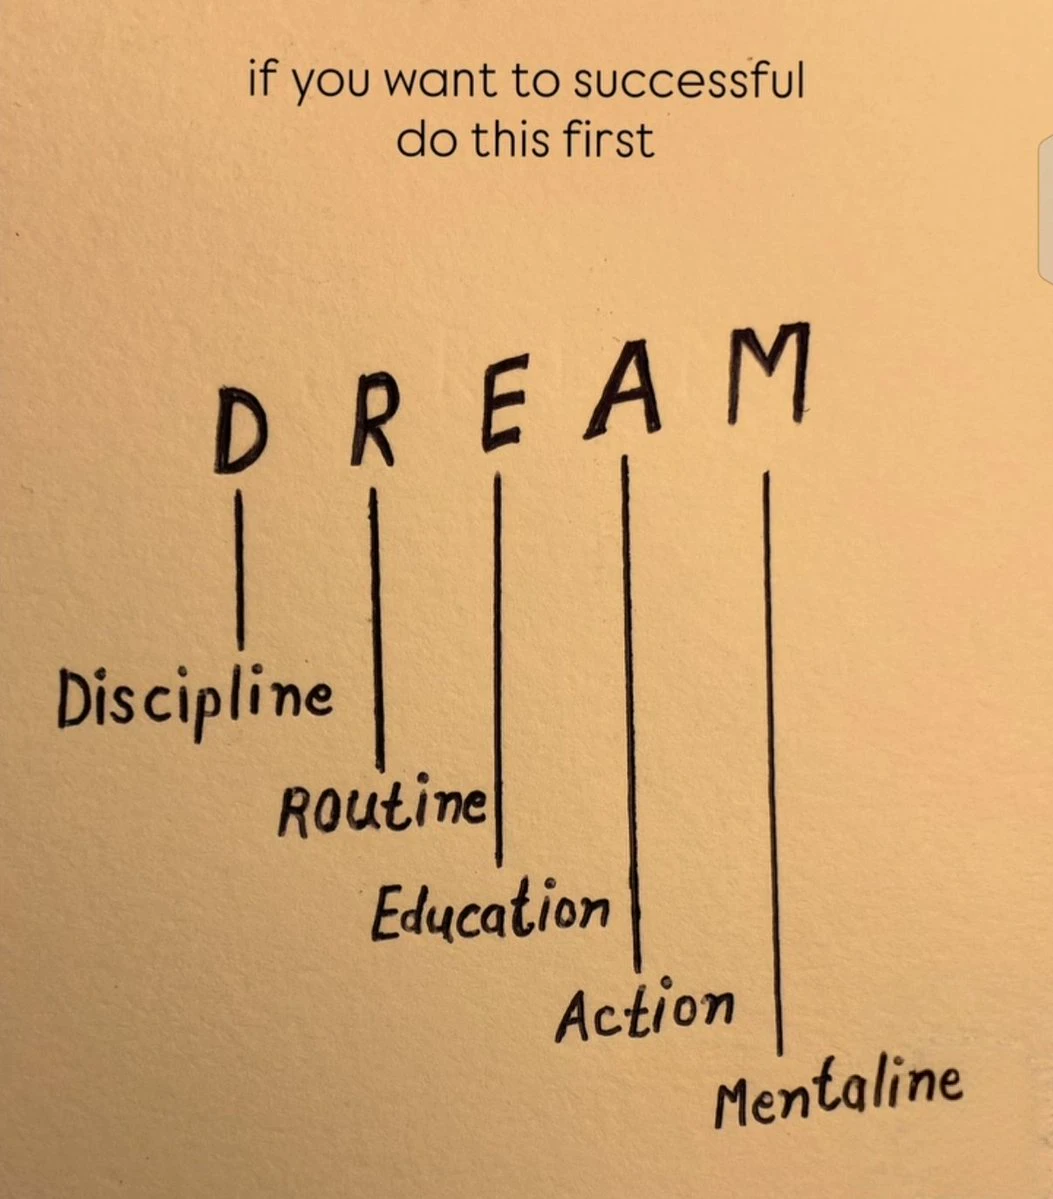 if you want to successful
do this first
D R E A M
Discipline
Routine
Education
Action
Mentaline